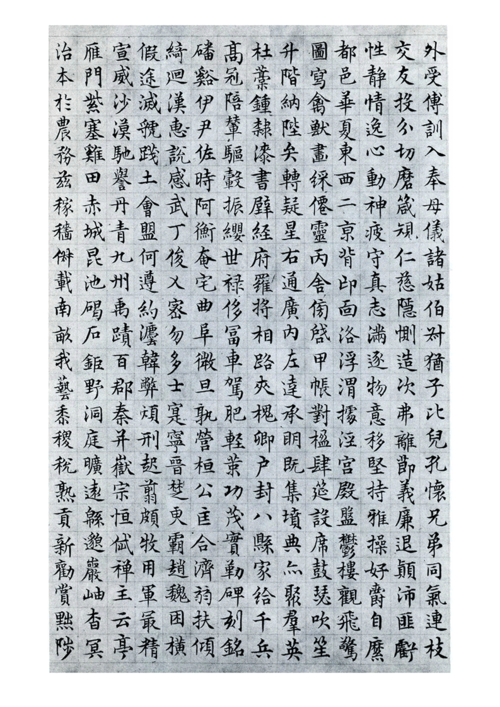 外受傅訓入奉母儀諸姑伯叔猶子比兒孔懷兄弟同氣連枝
交友投分切磨箴規仁慈隱惻造次弗離節義廉退顛沛匪虧
性静情逸心動神疲守真志滿逐物意移堅持雅操好爵自縻
都邑華夏東西二京背邙面洛浮渭據涇宮殿盤鬱樓觀飛驚
圖寫禽獸畫綵僊靈丙舍傍啓甲帳對楹肆筵設席鼓瑟吹笙
升階納陛弁轉疑星右通廣内左達承明既集墳典亦聚羣英
杜稾鍾隸漆書壁經府羅將相路夾槐卿户封八縣家給千兵
高冠陪輦驅轂振纓世禄侈富車駕肥輕策功茂實勒碑刻銘
磻谿伊尹佐時阿衡奄宅曲阜微旦孰營桓公匡合濟弱扶傾
綺迴漢惠說感武丁俊乂密勿多士寔寧晉楚更霸趙魏困横
假途滅虢踐土會盟何遵約灋韓弊煩刑起翦頗牧用軍最精
宣威沙漠馳譽丹青九州禹蹟百郡秦并嶽宗恒岱禪主云亭
雁門紫塞雞田赤城昆池碣石鉅野洞庭曠遠緜邈巖岫杳冥
治本於農務茲稼穡俶載南畝我藝黍稷稅熟貢新勸賞黜陟